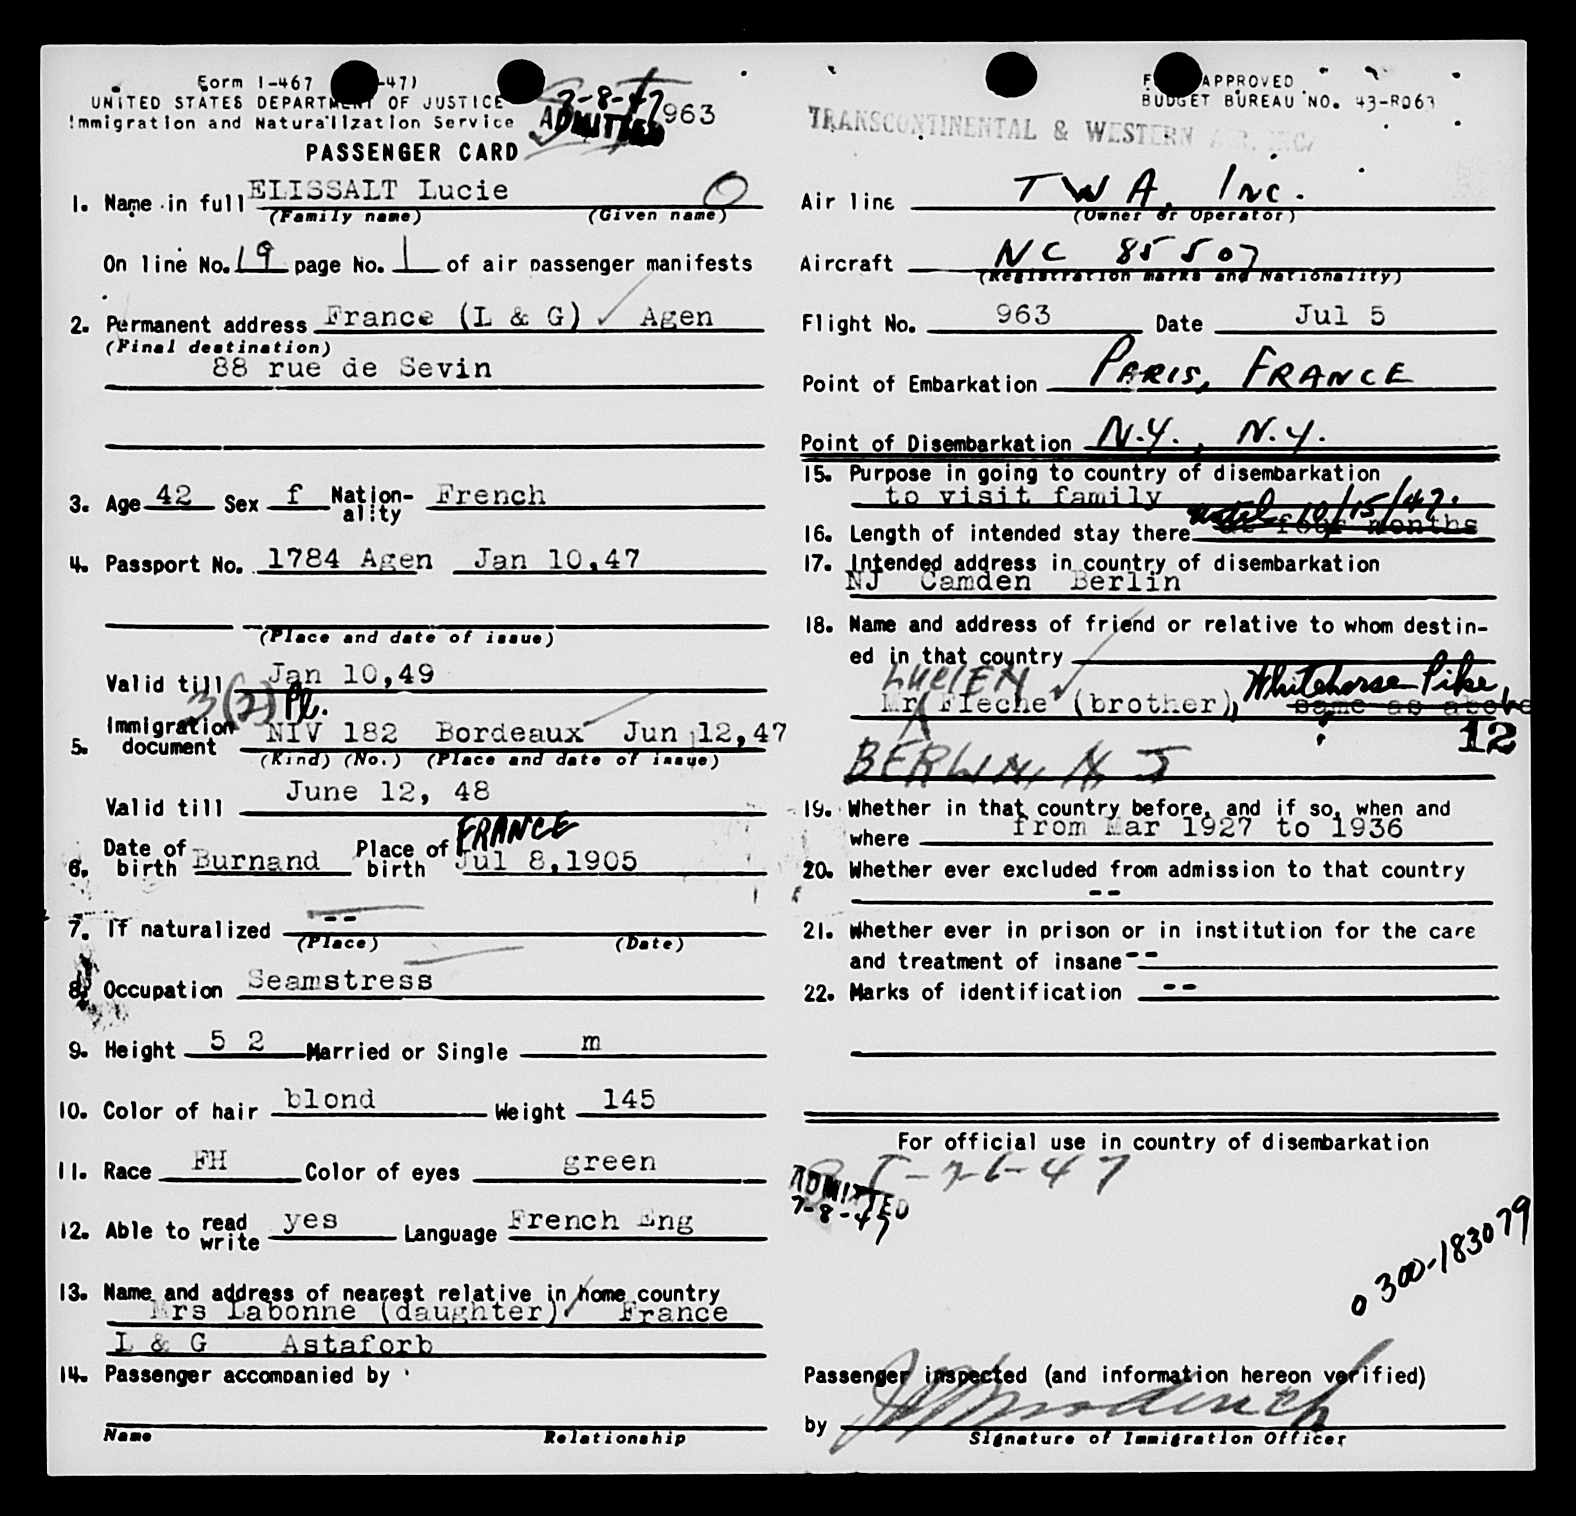 Form I-467
-47)
UNITED STATES DEPARTMENT OF JUSTICE
Immigration and Naturalization Service
PASSENGER CARD
7-8-47
ADMITTED
963
1. Name in full ELISSALT Lucie
(Family name) (Given name)
On line No. 19 page No. 1 of air passenger manifests
2. Permanent address France (L & G) Agen
(Final destination)
88 rue de Sevin
3. Age 42 Sex f Nation-ality French
4. Passport No. 1784 Agen Jan 10,47
(Place and date of issue)
Valid till Jan 10,49
3(2) Pl.
5. Immigration document NIV 182 Bordeaux Jun 12,47
(Kind) (No.) (Place and date of issue)
Valid till June 12, 48
FRANCE
6. Date of birth Burnand Place of birth Jul 8,1905
7. If naturalized --
(Place) (Date)
8. Occupation Seamstress
9. Height 5 2 Married or Single m
10. Color of hair blond Weight 145
11. Race FH Color of eyes green
12. Able to read write yes Language French Eng
13. Name and address of nearest relative in home country
Mrs Labonne (daughter) France
L & G Astaforb
14. Passenger accompanied by
Name Relationship
APPROVED
BUDGET BUREAU NO. 43-R063
TRANSCONTINENTAL & WESTERN AIR, INC.
Air line TWA, INC.
(Owner or Operator)
Aircraft NC 85507
(Registration marks and Nationality)
Flight No. 963 Date Jul 5
Point of Embarkation PARIS, FRANCE
Point of Disembarkation N.Y., N.Y.
15. Purpose in going to country of disembarkation
to visit family
until 10/15/47.
16. Length of intended stay there four months
17. Intended address in country of disembarkation
NJ Camden Berlin
18. Name and address of friend or relative to whom destin-
ed in that country
LUCIEN Whitehorse Pike,
Mr Fleche (brother), same as above
12
BERLIN, N J
19. Whether in that country before, and if so, when and
where from Mar 1927 to 1936
20. Whether ever excluded from admission to that country
--
21. Whether ever in prison or in institution for the care
and treatment of insane --
22. Marks of identification --
For official use in country of disembarkation
ADMITTED
7-8-47
0 300-183079
Passenger inspected (and information hereon verified)
by
Signature of Immigration Officer